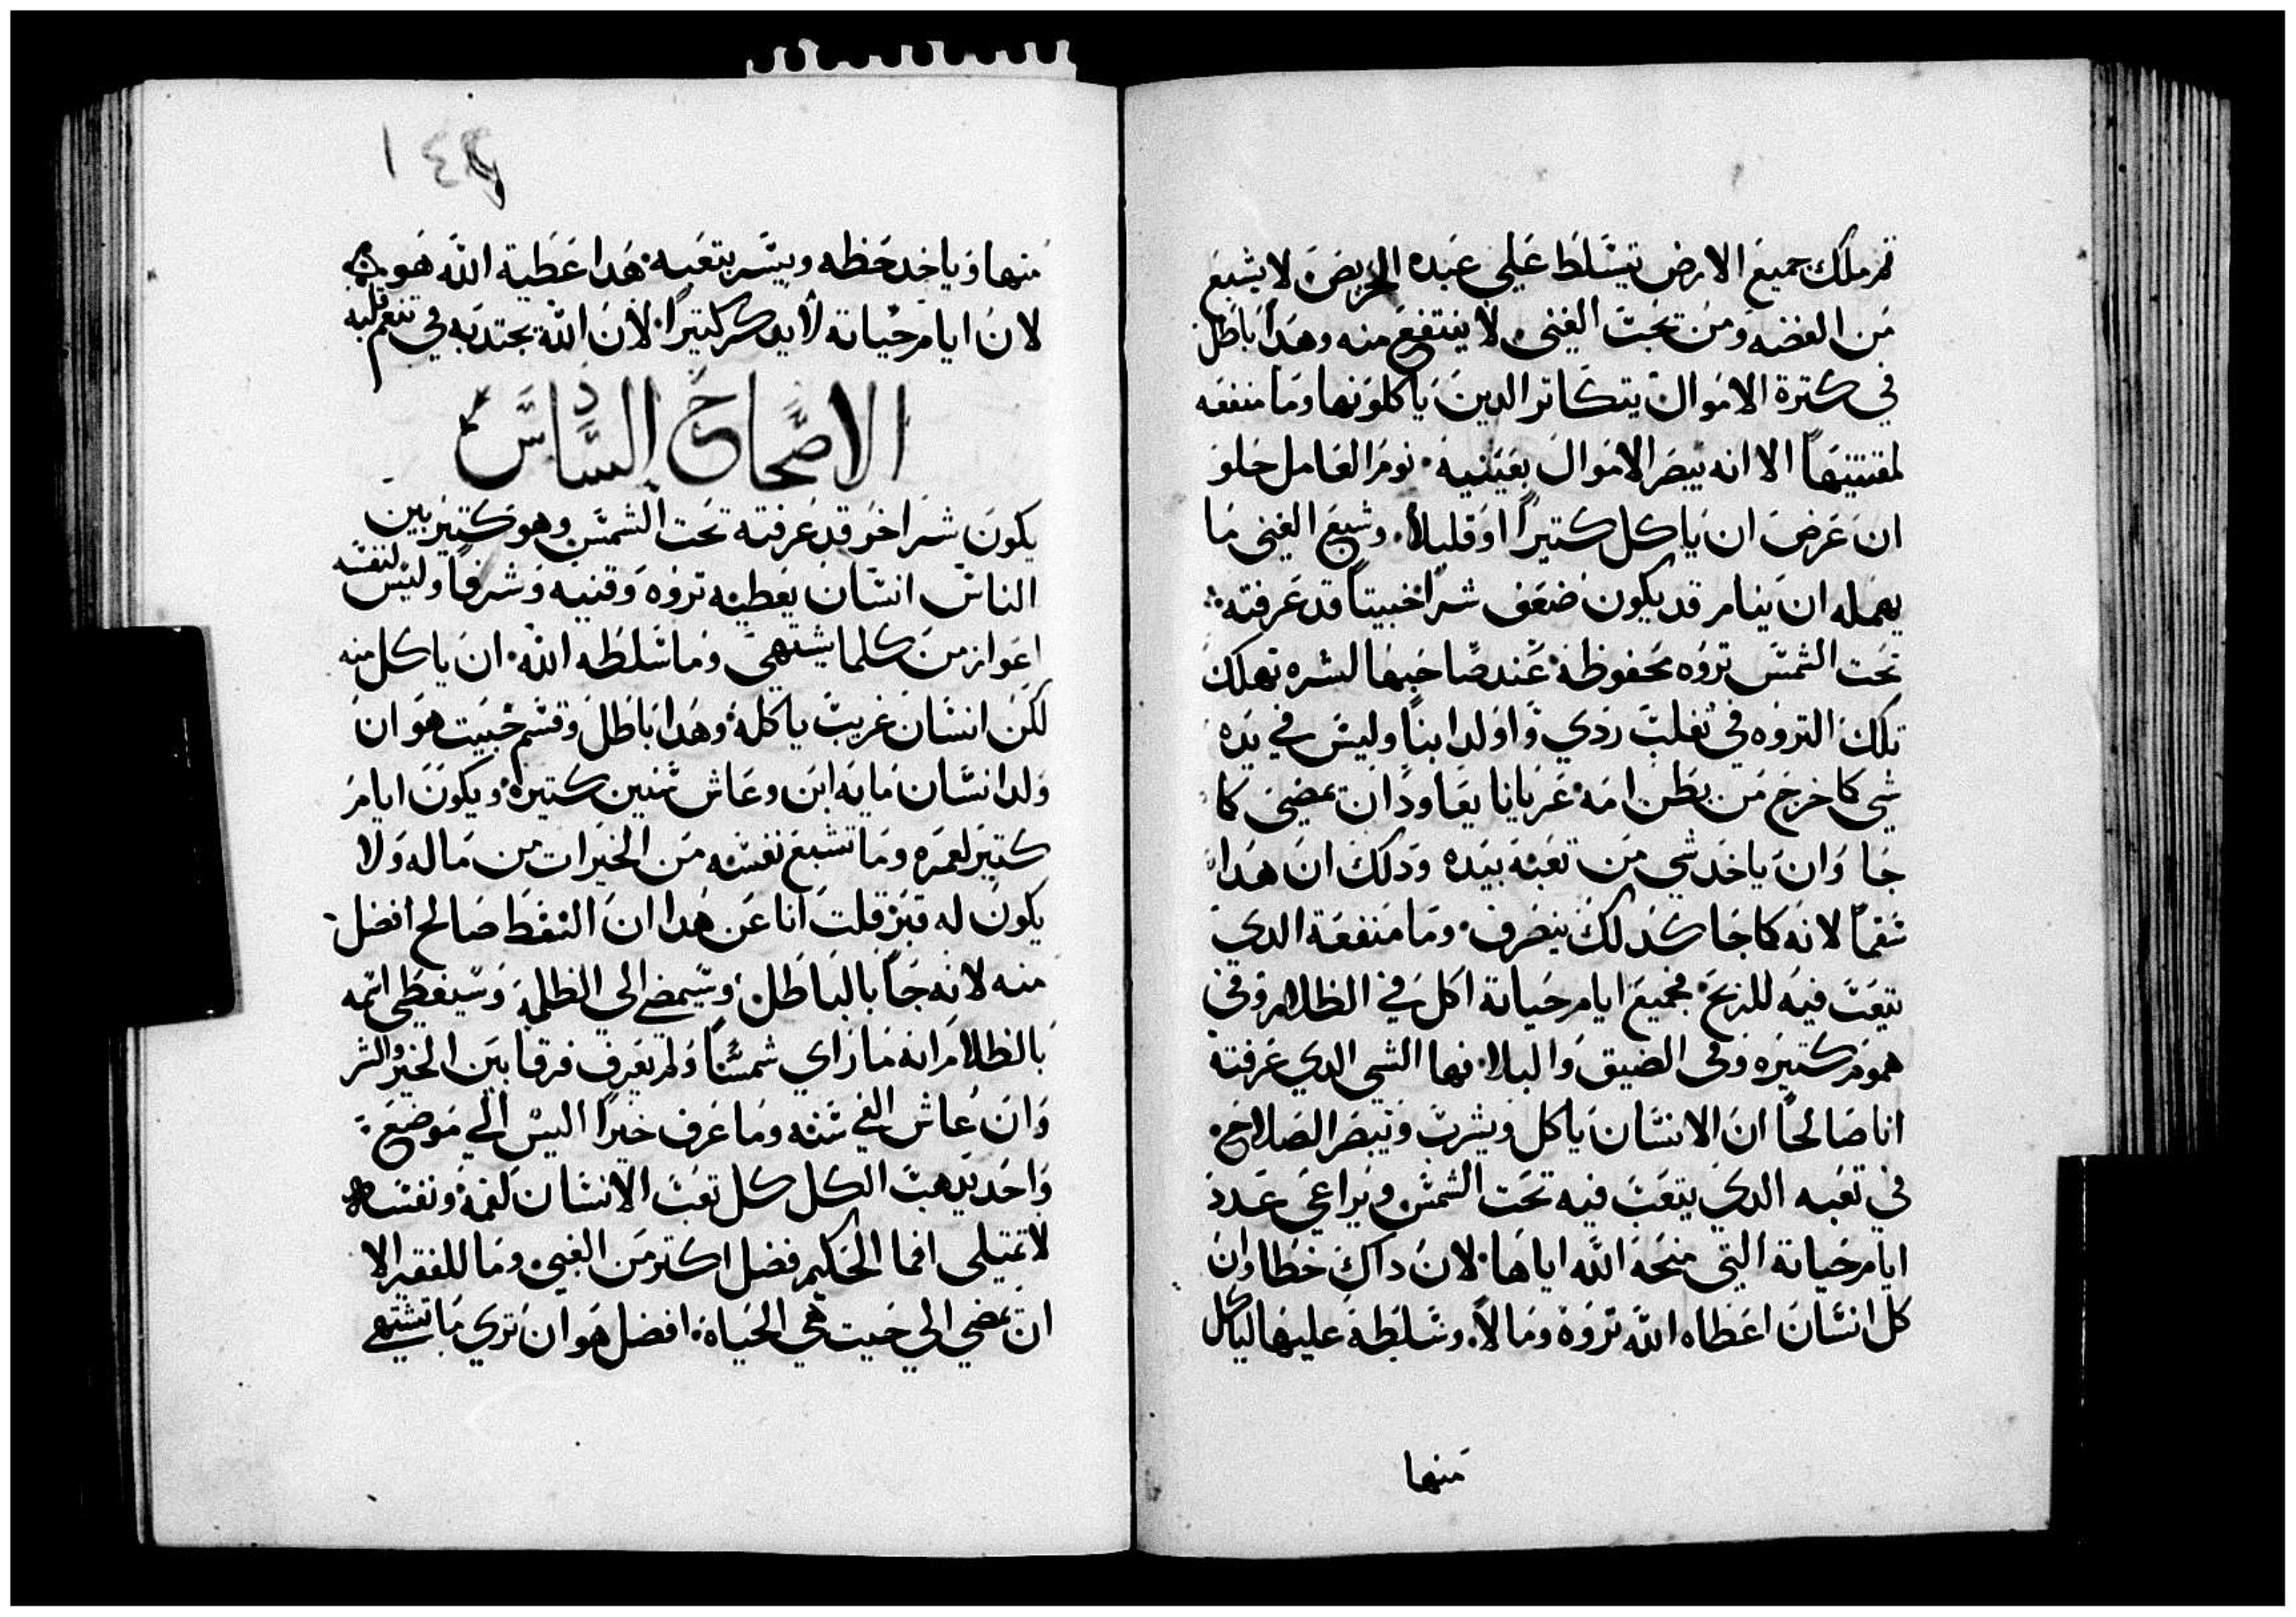 ثم ملك جميع الارض يتسلط علي عبده الحريص لا يشبع
من الفضه ومن يحب الغني لا ينتفع منه وهدا باطل
في كترة الاموال يتكاتر الدين ياكلونها وما منفعه
لمقتنيها الا انه يبصر الاموال بعينيه نوم العامل حلو
ان عرض ان ياكل كتيرا او قليلا وشبع الغني ما
يهمله ان ينام قد يكون ضعف شرا خبيتا قد عرفته
تحت الشمس تروه محفوظة عند صاحبها لشره تهلك
تلك التروه في تغلب ردي واولد ابنا وليس في يده
شي كما خرج من بطن امه عريانا يعاود ان يمضي كما
جا وان ياخد شي من تعبه بيده ودلك ان هدا
سقما لانه كما جا كدلك ينصرف وما منفعة الدي
يتعب فيه للريح فجميع ايام حياته اكل في الظلام وفي
هموم كتيره وفي الضيق والبلا فها الشي الدي عرفته
انا صالحا ان الانسان ياكل ويشرب ويبصر الصلاح
في تعبه الدي يتعب فيه تحت الشمس ويراعي عدد
ايام حياته التي منحه الله اياها لان داك خطا وان
كل انسان اعطاه الله تروة ومالا وسلطه عليها لياكل
منها
١٤٩
منها وياخد حظه ويسر بتعبه هدا عطية الله هو
لان ايام حياته لا يدكر كتيرا لان الله يجتدبه في تنعم قلبه
الاصحاح السادس
يكون شر اخر قد عرفته تحت الشمس وهو كتير بين
الناس انسان يعطيه تروه وقنيه وشرفا وليس لنفسه
اعواز من كلما يشتهي وما سلطه الله ان ياكل منه
لكن انسان غريب ياكله وهدا باطل وقسم خبيت هو ان
ولد انسان مايه ابن وعاش سنين كتيره ويكون ايام
كتير لعمره وما تشبع نفسه من الخيرات من ماله ولا
يكون له قبر قلت انا عن هدا ان السقط صالح افضل
منه لانه جا بالباطل وسيمضي الي الظلمة وسيغطي اسمه
بالظلام انه ما راي شمسا ولم يعرف فرقا بين الخير والشر
وان عاش الفي سنه وما عرف خيرا اليس الي موضع
واحد يدهب الكل كل تعب الانسان لفمه ونفسه
لا تمتيلي افما الحكيم فضل اكتر من الغبي وما للفقير الا
ان يمضي الي حيت هي الحياة افضل هو ان تري ما تشتهي